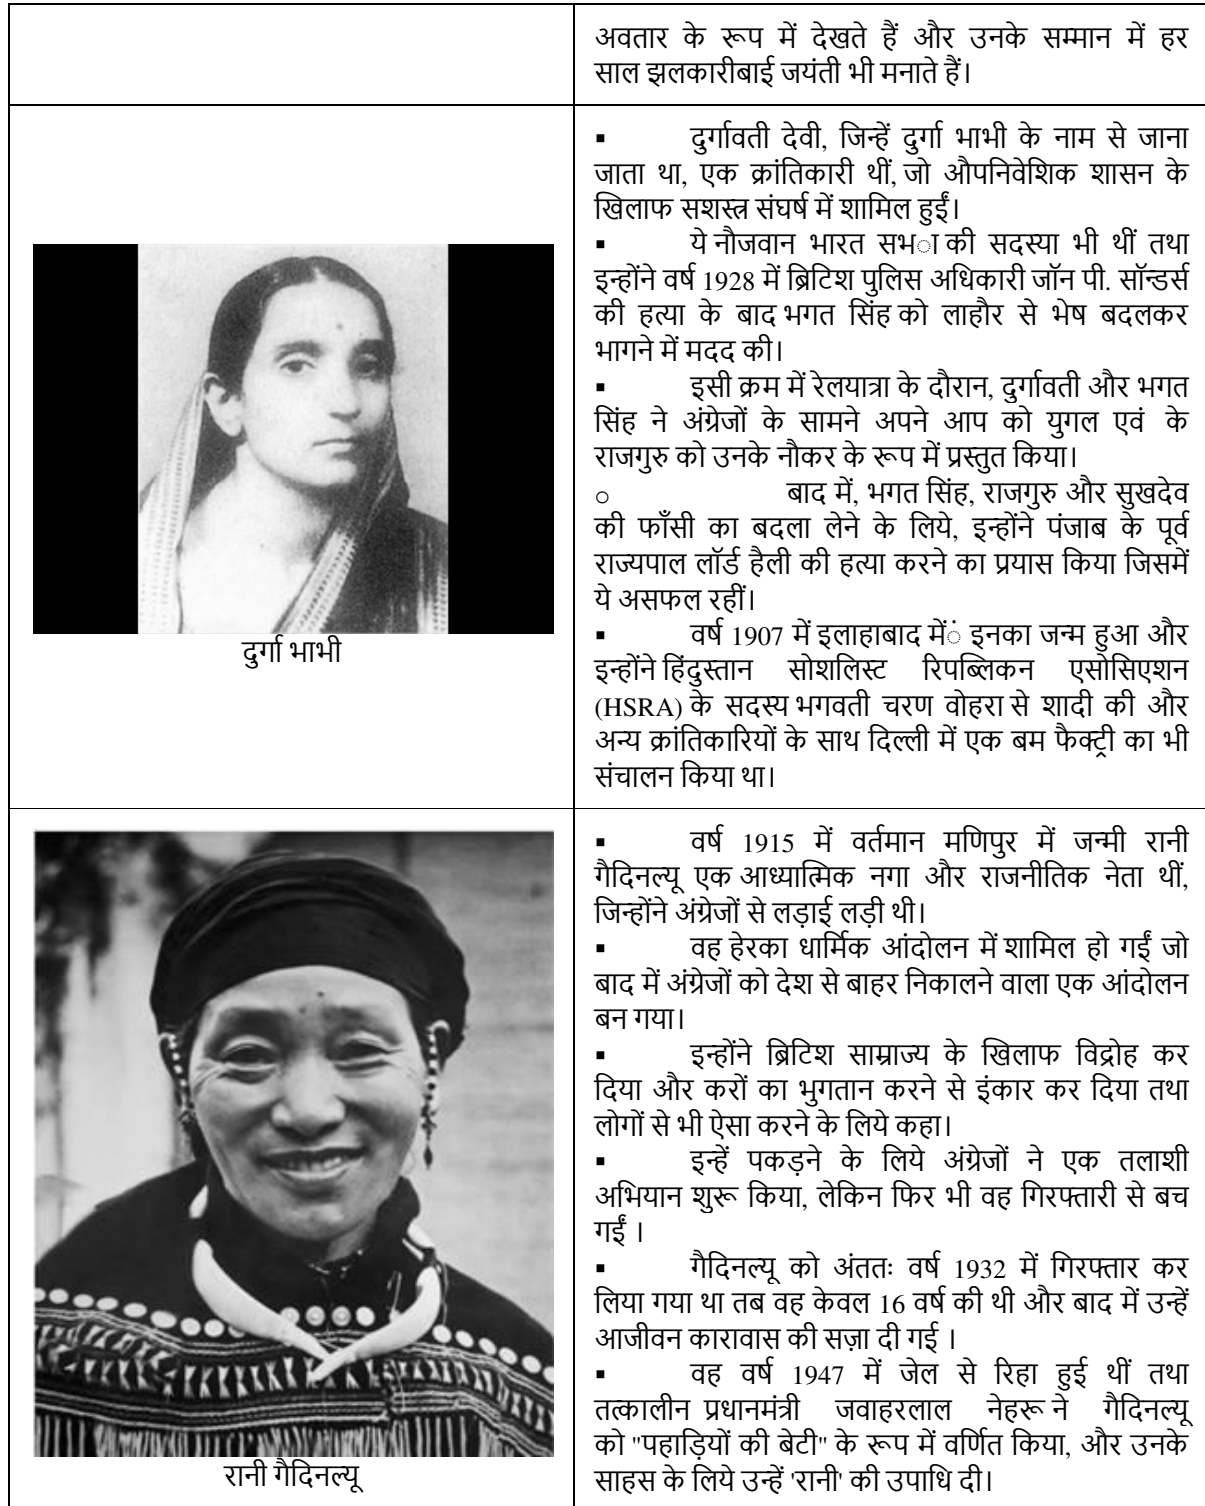 अवतार के रूप में देखते हैं और उनके सम्मान में हर
साल झलकारीबाई जयंती भी मनाते हैं।
▪ दुर्गावती देवी, जिन्हें दुर्गा भाभी के नाम से जाना
जाता था, एक क्रांतिकारी थीं, जो औपनिवेशिक शासन के
खिलाफ सशस्त्र संघर्ष में शामिल हुईं।
▪ ये नौजवान भारत सभा की सदस्या भी थीं तथा
इन्होंने वर्ष 1928 में ब्रिटिश पुलिस अधिकारी जॉन पी. सॉन्डर्स
की हत्या के बाद भगत सिंह को लाहौर से भेष बदलकर
भागने में मदद की।
▪ इसी क्रम में रेलयात्रा के दौरान, दुर्गावती और भगत
सिंह ने अंग्रेजों के सामने अपने आप को युगल एवं के
राजगुरु को उनके नौकर के रूप में प्रस्तुत किया।
○ बाद में, भगत सिंह, राजगुरु और सुखदेव
की फाँसी का बदला लेने के लिये, इन्होंने पंजाब के पूर्व
राज्यपाल लॉर्ड हैली की हत्या करने का प्रयास किया जिसमें
ये असफल रहीं।
▪ वर्ष 1907 में इलाहाबाद मेंं इनका जन्म हुआ और
इन्होंने हिंदुस्तान सोशलिस्ट रिपब्लिकन एसोसिएशन
(HSRA) के सदस्य भगवती चरण वोहरा से शादी की और
अन्य क्रांतिकारियों के साथ दिल्ली में एक बम फैक्ट्री का भी
संचालन किया था।
दुर्गा भाभी
▪ वर्ष 1915 में वर्तमान मणिपुर में जन्मी रानी
गैदिनल्यू एक आध्यात्मिक नगा और राजनीतिक नेता थीं,
जिन्होंने अंग्रेजों से लड़ाई लड़ी थी।
▪ वह हेरका धार्मिक आंदोलन में शामिल हो गईं जो
बाद में अंग्रेजों को देश से बाहर निकालने वाला एक आंदोलन
बन गया।
▪ इन्होंने ब्रिटिश साम्राज्य के खिलाफ विद्रोह कर
दिया और करों का भुगतान करने से इंकार कर दिया तथा
लोगों से भी ऐसा करने के लिये कहा।
▪ इन्हें पकड़ने के लिये अंग्रेजों ने एक तलाशी
अभियान शुरू किया, लेकिन फिर भी वह गिरफ्तारी से बच
गईं ।
▪ गैदिनल्यू को अंततः वर्ष 1932 में गिरफ्तार कर
लिया गया था तब वह केवल 16 वर्ष की थी और बाद में उन्हें
आजीवन कारावास की सज़ा दी गई ।
▪ वह वर्ष 1947 में जेल से रिहा हुई थीं तथा
तत्कालीन प्रधानमंत्री जवाहरलाल नेहरू ने गैदिनल्यू
को "पहाड़ियों की बेटी" के रूप में वर्णित किया, और उनके
साहस के लिये उन्हें 'रानी' की उपाधि दी।
रानी गैदिनल्यू